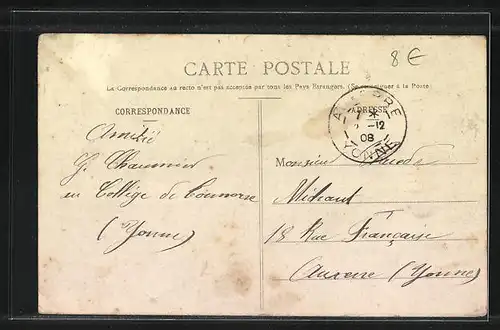 8€
CARTE POSTALE
La Correspondance au recto n'est pas acceptée par tous les Pays Étrangers. (Se renseigner à la Poste
CORRESPONDANCE
ADRESSE
AUXERRE
7 * -12
08
YONNE
Amitié
G. Chaumier
au Collège de
(Yonne)
Monsieur
Michaut
18 Rue Française
Auxerre (Yonne)